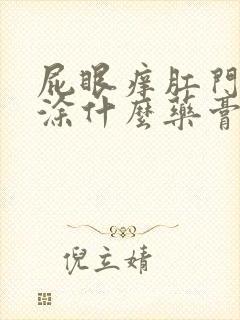 屁眼痒肛門
涂什麼藥膏
倪立婧